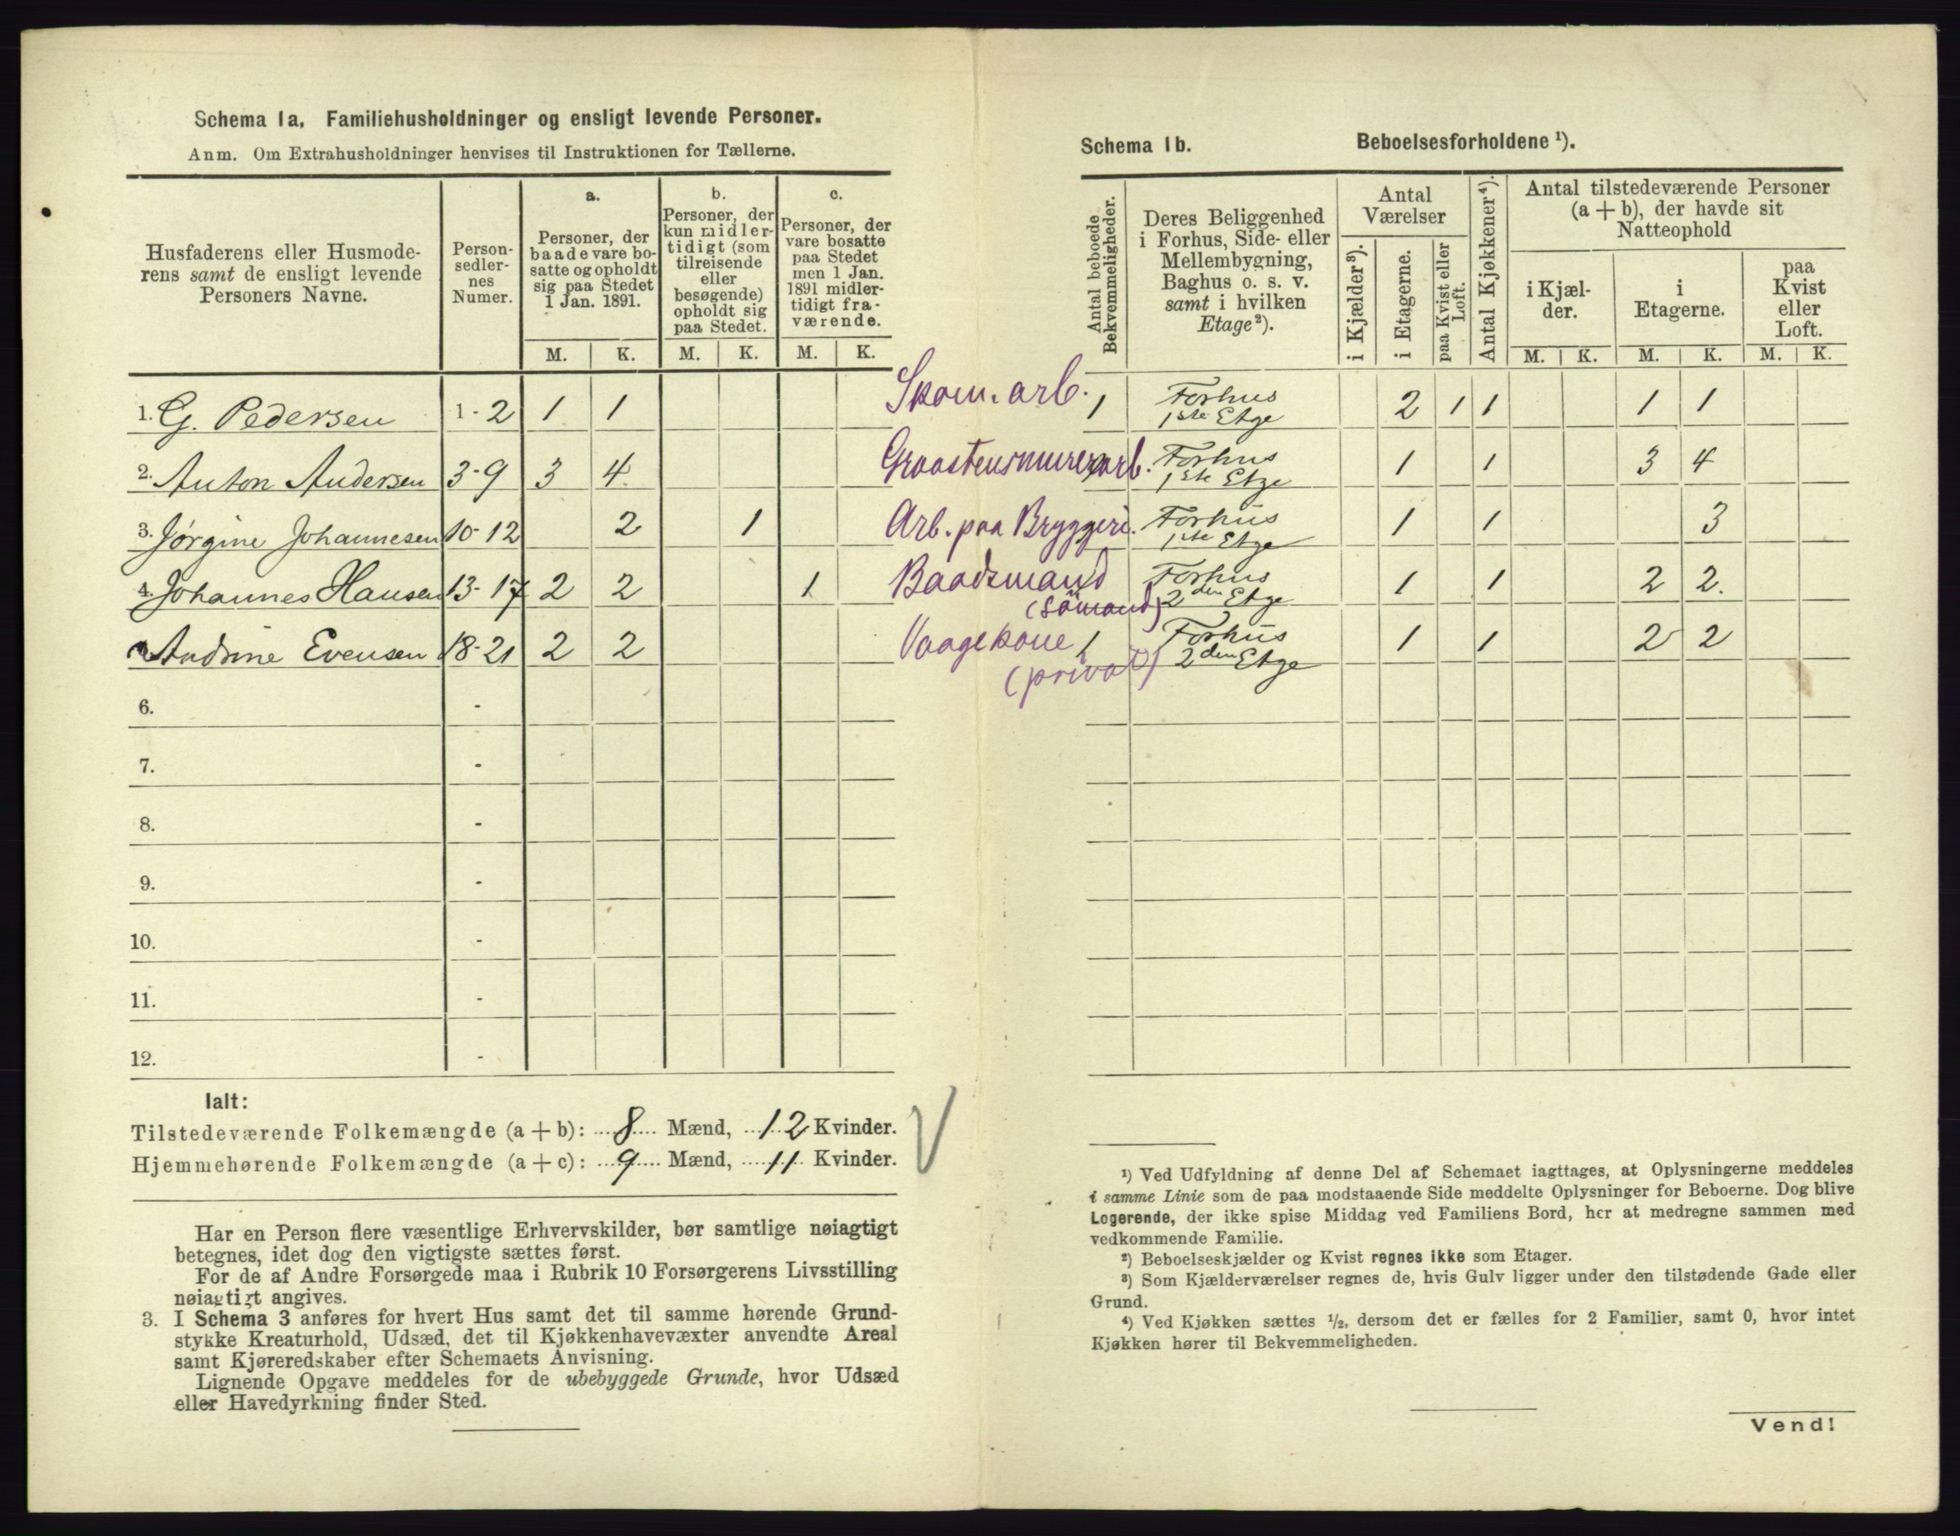 Schema 1a. Familiehusholdninger og ensligt levende Personer.
Anm. Om Extrahusholdninger henvises til Instruktionen for Tællerne.
Husfaderens eller Husmode-
rens samt de ensligt levende
Personers Navne.
Person-
sedler-
nes
Numer.
a.
Personer, der
baade vare bo-
satte og opholdt
sig paa Stedet
1 Jan. 1891.
b.
Personer, der
kun midler-
tidigt (som
tilreisende
eller
besøgende)
opholdt sig
paa Stedet.
c.
Personer, der
vare bosatte
paa Stedet
men 1 Jan.
1891 midler-
tidigt fra-
værende.
M. K. M. K. M. K.
1. G. Pedersen 1-2 1 1
2. Anton Andersen 3-9 3 4
3. Jørgine Johannesen 10-12 2 1
4. Johannes Hansen 13-17 2 2 1
Andrine Evensen 18-21 2 2
6. -
7. -
8. -
9. -
10. -
11. -
12. -
Ialt:
Tilstedeværende Folkemængde (a+b): 8 Mænd, 12 Kvinder.
Hjemmehørende Folkemængde (a+c): 9 Mænd, 11 Kvinder.
Har en Person flere væsentlige Erhvervskilder, bør samtlige nøiagtigt
betegnes, idet dog den vigtigste sættes først.
For de af Andre Forsørgede maa i Rubrik 10 Forsørgerens Livsstilling
nøiagtigt angives.
3. I Schema 3 anføres for hvert Hus samt det til samme hørende Grund-
stykke Kreaturhold, Udsæd, det til Kjøkkenhavevæxter anvendte Areal
samt Kjøreredskaber efter Schemaets Anvisning.
Lignende Opgave meddeles for de ubebyggede Grunde, hvor Udsæd
eller Havedyrkning finder Sted.
Schema 1b. Beboelsesforholdene ¹).
Antal beboede
Bekvemmeligheder.
Deres Beliggenhed
i Forhus, Side- eller
Mellembygning,
Baghus o. s. v.
samt i hvilken
Etage²).
Antal
Værelser
i Kjælder³).
i Etagerne.
paa Kvist eller
Loft.
Antal Kjøkkener⁴).
Antal tilstedeværende Personer
(a+b), der havde sit
Natteophold
i Kjæl-
der.
i
Etagerne.
paa
Kvist
eller
Loft.
M. K. M. K. M. K.
Skom. arb. 1 Forhus
1ste Etge 2 1 1 1 1
Graastensmurerarb. Forhus
1ste Etge 1 1 3 4
Arb. paa Bryggeri. Forhus
1ste Etge 1 1 3
Baadsmand
(Sömand) Forhus
2den Etge 1 1 2 2.
Vaagekone
(privat) 1 Forhus
2den Etge 1 1 2 2
¹) Ved Udfyldning af denne Del af Schemaet iagttages, at Oplysningerne meddeles
i samme Linie som de paa modstaaende Side meddelte Oplysninger for Beboerne. Dog blive
Logerende, der ikke spise Middag ved Familiens Bord, her at medregne sammen med
vedkommende Familie.
²) Beboelseskjælder og Kvist regnes ikke som Etager.
³) Som Kjælderværelser regnes de, hvis Gulv ligger under den tilstødende Gade eller
Grund.
⁴) Ved Kjøkken sættes ½, dersom det er fælles for 2 Familier, samt 0, hvor intet
Kjøkken hører til Bekvemmeligheden.
Vend!